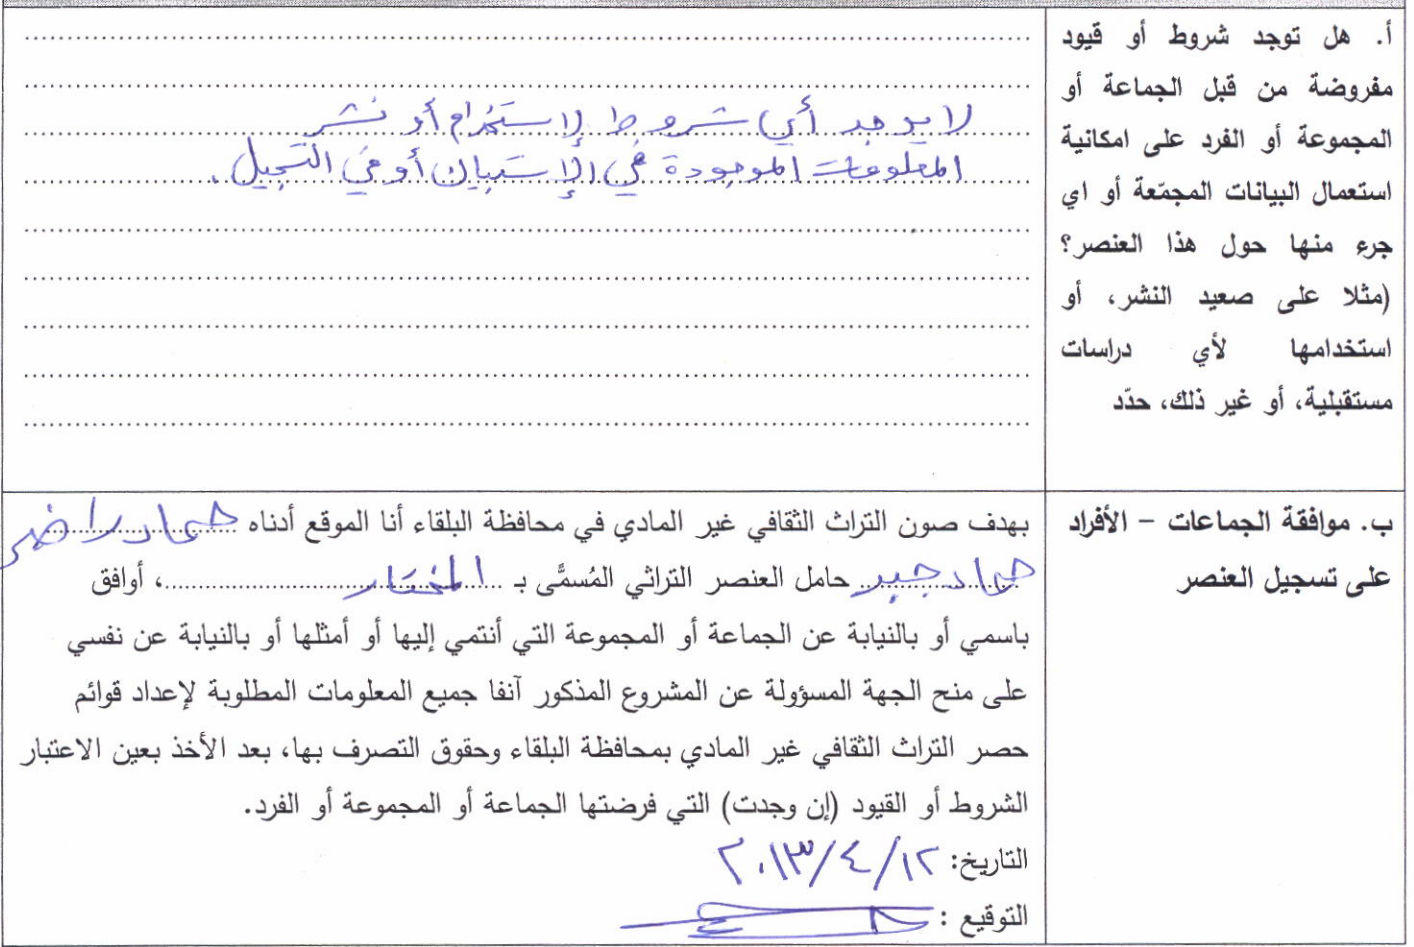 أ. هل توجد شروط أو قيود
مفروضة من قبل الجماعة أو
المجموعة أو الفرد على امكانية
استعمال البيانات المجمّعة أو اي
جزء منها حول هذا العنصر؟
(مثلا على صعيد النشر، أو
استخدامها لأي دراسات
مستقبلية، أو غير ذلك، حدّد
لا يوجد أي شروط لإستخدام أو نشر
المعلومات الموجودة في الإستبيان أو في التسجيل.
ب. موافقة الجماعات – الأفراد
على تسجيل العنصر
بهدف صون التراث الثقافي غير المادي في محافظة البلقاء أنا الموقع أدناه حماد راضي
حماد جبر حامل العنصر التراثي المُسمَّى بـ المختار، أوافق
باسمي أو بالنيابة عن الجماعة أو المجموعة التي أنتمي إليها أو أمثلها أو بالنيابة عن نفسي
على منح الجهة المسؤولة عن المشروع المذكور آنفا جميع المعلومات المطلوبة لإعداد قوائم
حصر التراث الثقافي غير المادي بمحافظة البلقاء وحقوق التصرف بها، بعد الأخذ بعين الاعتبار
الشروط أو القيود (إن وجدت) التي فرضتها الجماعة أو المجموعة أو الفرد.
التاريخ: ٢٠١٣/٤/١٢
التوقيع :